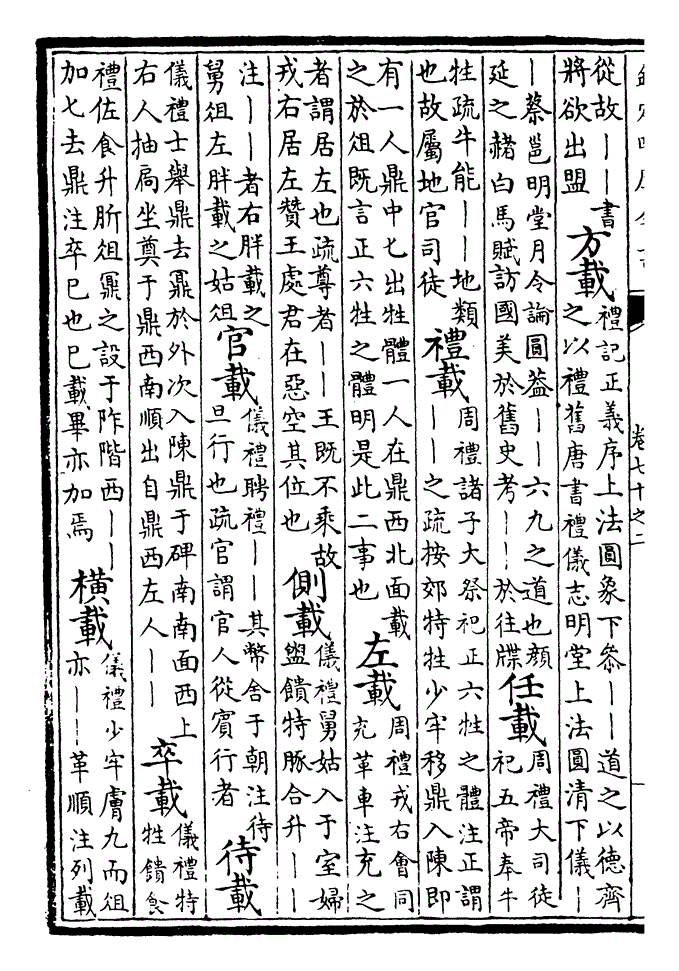 卷七十之二
從故丨丨書
將欲出盟
方載
禮記正義序上法圓象下叅丨丨道之以德齊
之以禮舊唐書禮儀志明堂上法圓清下儀丨
丨蔡邕明堂月令論圓葢丨丨六九之道也顔
延之赭白馬賦訪國美於舊史考丨丨於往牒
任載
周禮大司徒
祀五帝奉牛
牲疏牛能丨丨地類
也故屬地官司徒
禮載
周禮諸子大祭祀正六牲之體注正謂
丨丨之疏按郊特牲少牢移鼎入陳即
有一人鼎中匕出牲體一人在鼎西北面載
之於俎既言正六牲之體明是此二事也
左載
周禮戎右會同
充革車注充之
者謂居左也疏尊者丨丨王既不乘故
戎右居左贊王處君在惡空其位也
側載
儀禮舅姑入于室婦
盥饋特豚合升丨丨
注丨丨者右胖載之
舅俎左胖載之姑俎
官載
儀禮聘禮丨丨其幣舍于朝注待
旦行也疏官謂官人從賓行者
待載
儀禮士舉鼎去鼏於外次入陳鼎于碑南南面西上
右人抽扃坐奠于鼎西南順出自鼎西左人丨丨
卒載
儀禮特
牲饋食
禮佐食升肵俎鼏之設于阼階西丨丨
加匕去鼎注卒已也已載畢亦加焉
橫載
儀禮少牢膚九而俎
亦丨丨革順注列載